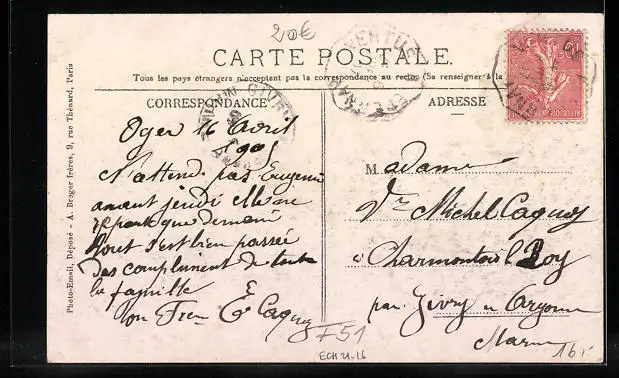 20€
CARTE POSTALE.
Tous les pays étrangers n'acceptent pas la correspondance au recto (Se renseigner à la
CORRESPONDANCE
Oger 16 Avril
1905
N'attend pas Eugenie
avant jeudi Elle ne
repart que demain
Tout s'est bien passée
Des compliment de toute
la famille
ton E Caquy
ADRESSE
Madame
Vve Michel Caquy
a Charmontois l Roy
par Givry en Argonne
Marne
Photo-Email, Déposé - A. Brager frères, 9, rue Thénard, Paris
F51
ECH 21-16
16